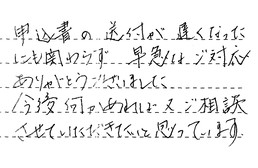 申込書の送付が遅くなった
にも関わらず 早急にご対応
ありがとうございました
今後何かあれば又ご相談
させていただきたいと思っています